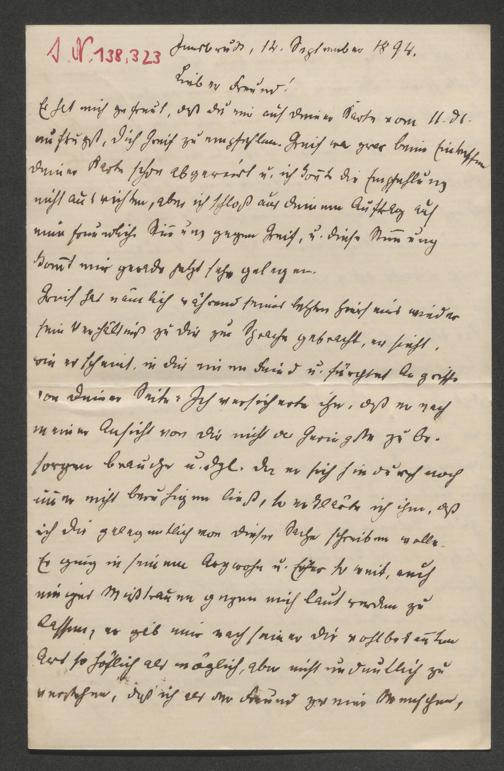 J. N. 138.323
Innsbruck, 12. September 1894.
Lieber Freund!
Es hat mich gefreut, daß du mir auf deiner Karte vom 11. ds.
auftrugst, dich Greif zu empfehlen. Greif war zwar beim Eintreffen
deiner Karte schon abgereist u. ich konnte die Empfehlung
nicht ausrichten, aber ich schloß aus deinem Auftrag auf
eine freundliche Stimmung gegen Greif, u. diese Stimmung
kommt mir gerade jetzt sehr gelegen.
Greif hat nämlich während seines letzten Hierseins wieder
sein Verhältniß zu dir zur Sprache gebracht, er sieht,
wie er scheint, in dir einen Feind u. fürchtet Angriffe
von deiner Seite. Ich versicherte ihn, daß er nach
meiner Ansicht von dir nicht das Geringste zu be-
sorgen brauche u. dgl. Da er sich hiedurch noch
immer nicht beruhigen ließ, so erklärte ich ihm, daß
ich dir gelegentlich von dieser Sache schreiben wolle.
Er ging in seinem Argwohn u. Eifer so weit, auch
einiges Mißtrauen gegen mich laut werden zu
lassen, er gab mir nach seiner dir wohlbekannten
Art so höflich als möglich, aber nicht undeutlich zu
verstehen, daß ich als der Freund zweier Menschen,